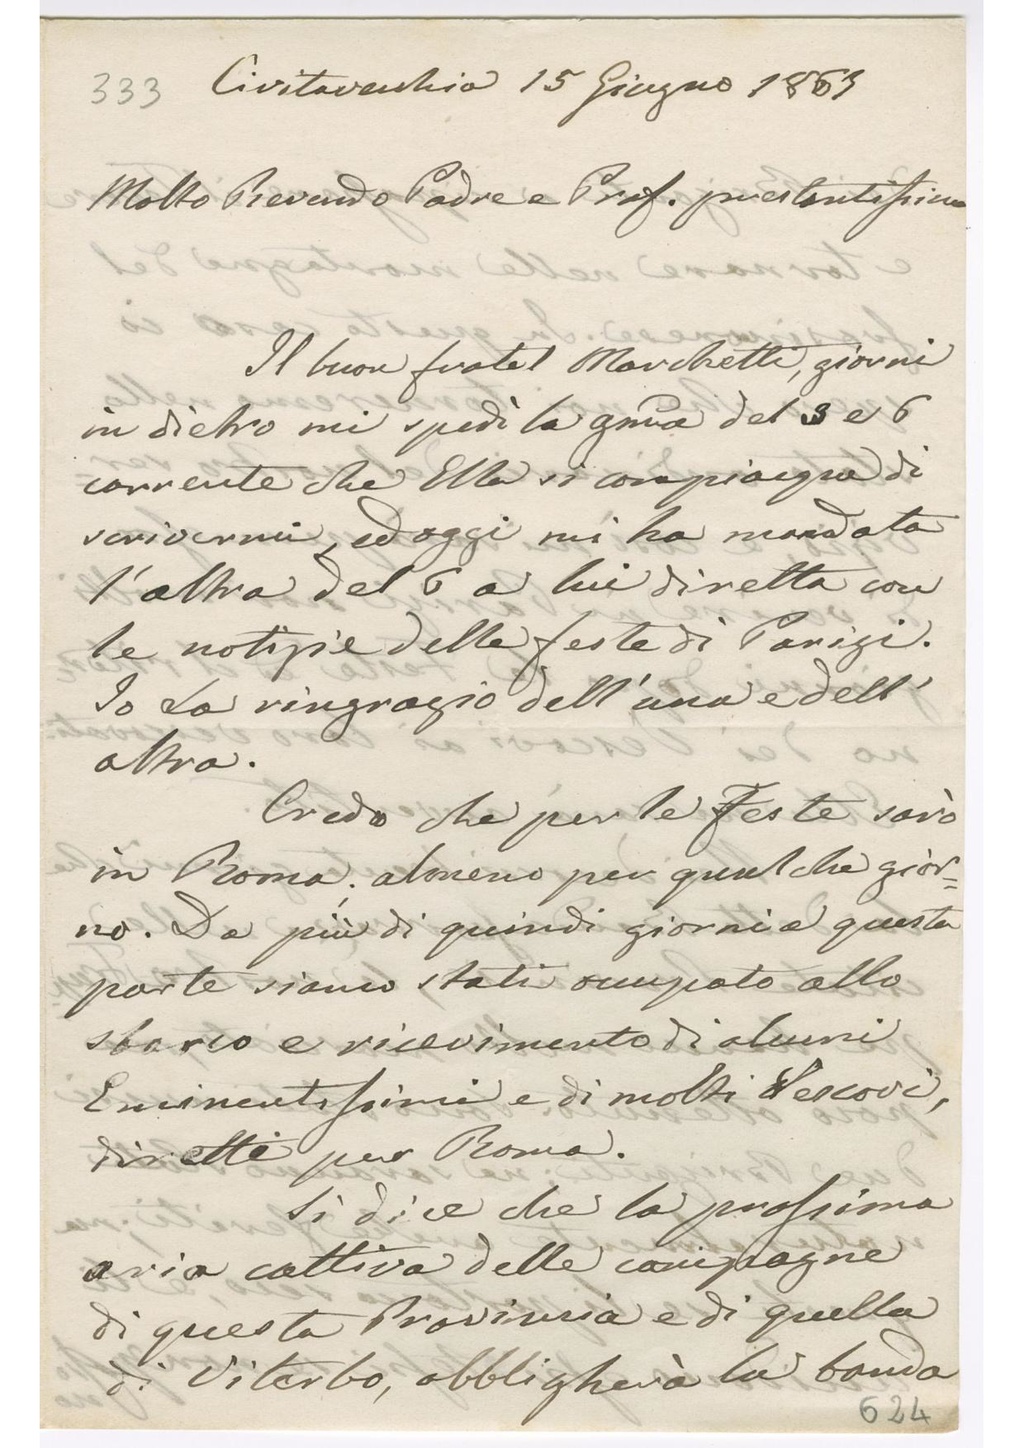 333 Civitavecchia 15 Giugno 1863
Molto Revendo Padre e Prof. prestantissimo
Il buon fratel Marchetti, giorni
in dietro mi spedì la gma del 3 e 6
corrente che Ella si compiacque di
scrivermi, ed oggi mi ha mandata
l'altra del 6 a lui diretta con
le notizie delle feste di Parigi.
Io La ringrazio dell'una e dell'
altra.
Credo che per le Feste sarò
in Roma, almeno per qualche gior=
no. Da più di quindi giorni a questa
parte siamo stati occupato allo
sbarco e ricevimento di alcuni
Eminentissimi e di molti Vescovi,
diretti per Roma.
Si dice che la prossima
aria cattiva delle campagne
di questa Provincia e di quella
di Viterbo, obbligherà la banda
624